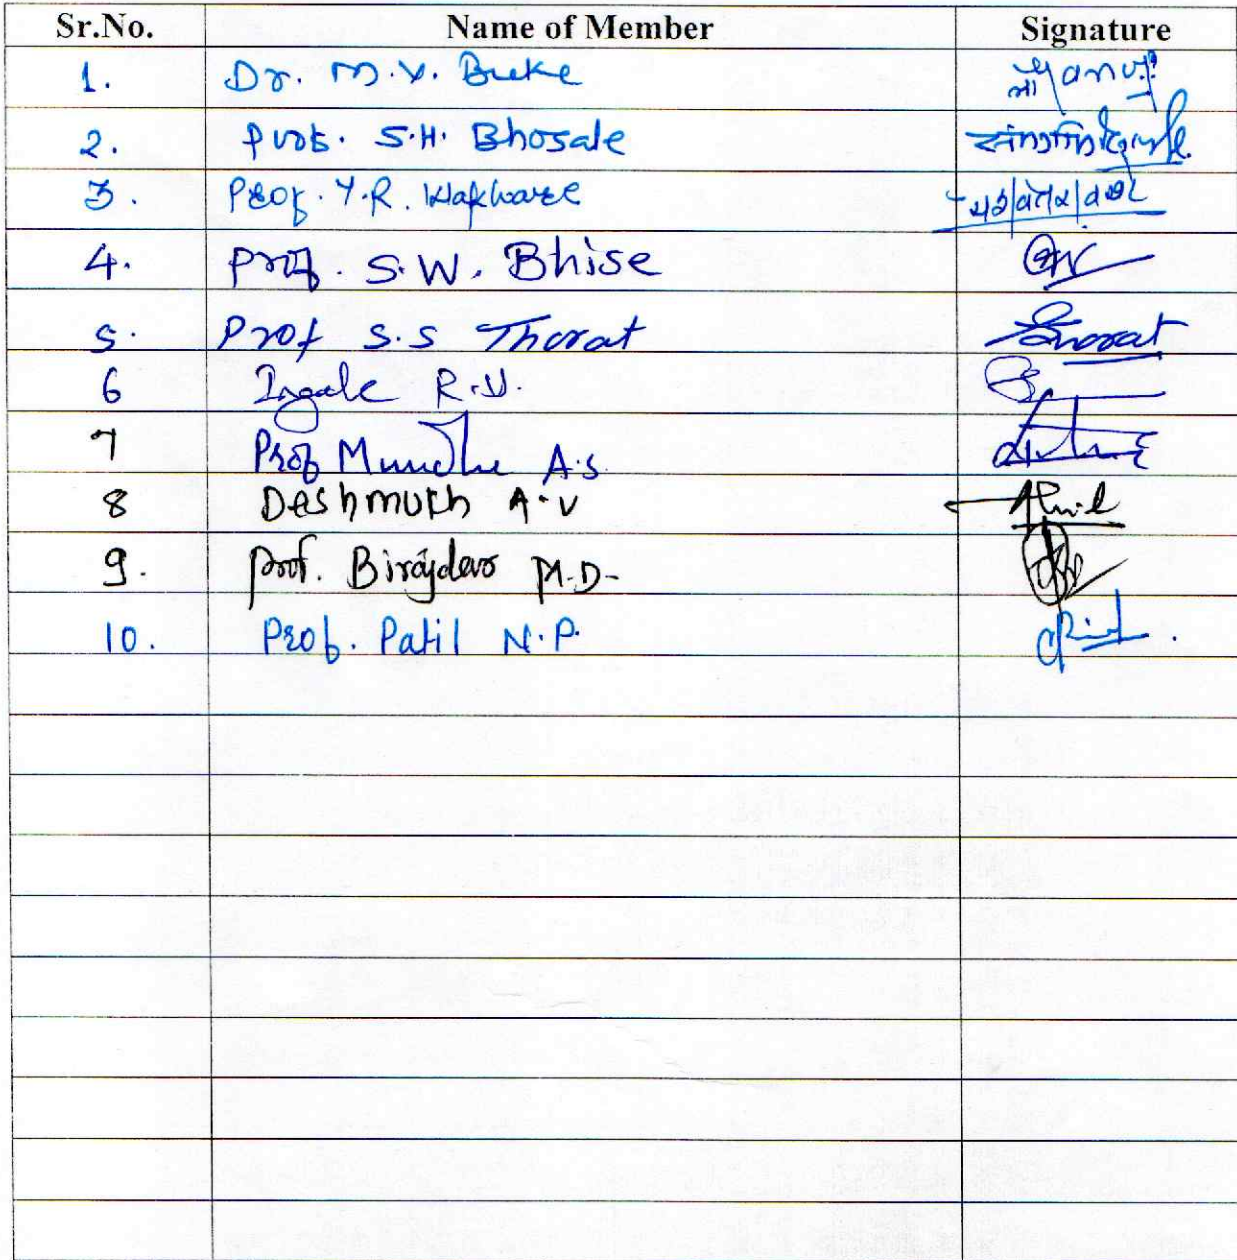 Sr.No. Name of Member Signature
1. Dr. M.V. Buke
2. Prof. S.H. Bhosale
3. Prof. Y.R. Wakhare
4. Prof. S.W. Bhise
5. Prof S.S Thorat Thorat
6 Ingale R.V.
7 Prof Mundhe A.S.
8 Deshmukh A.V
9. Prof. Birajdar M.D.
10. Prof. Patil N.P.